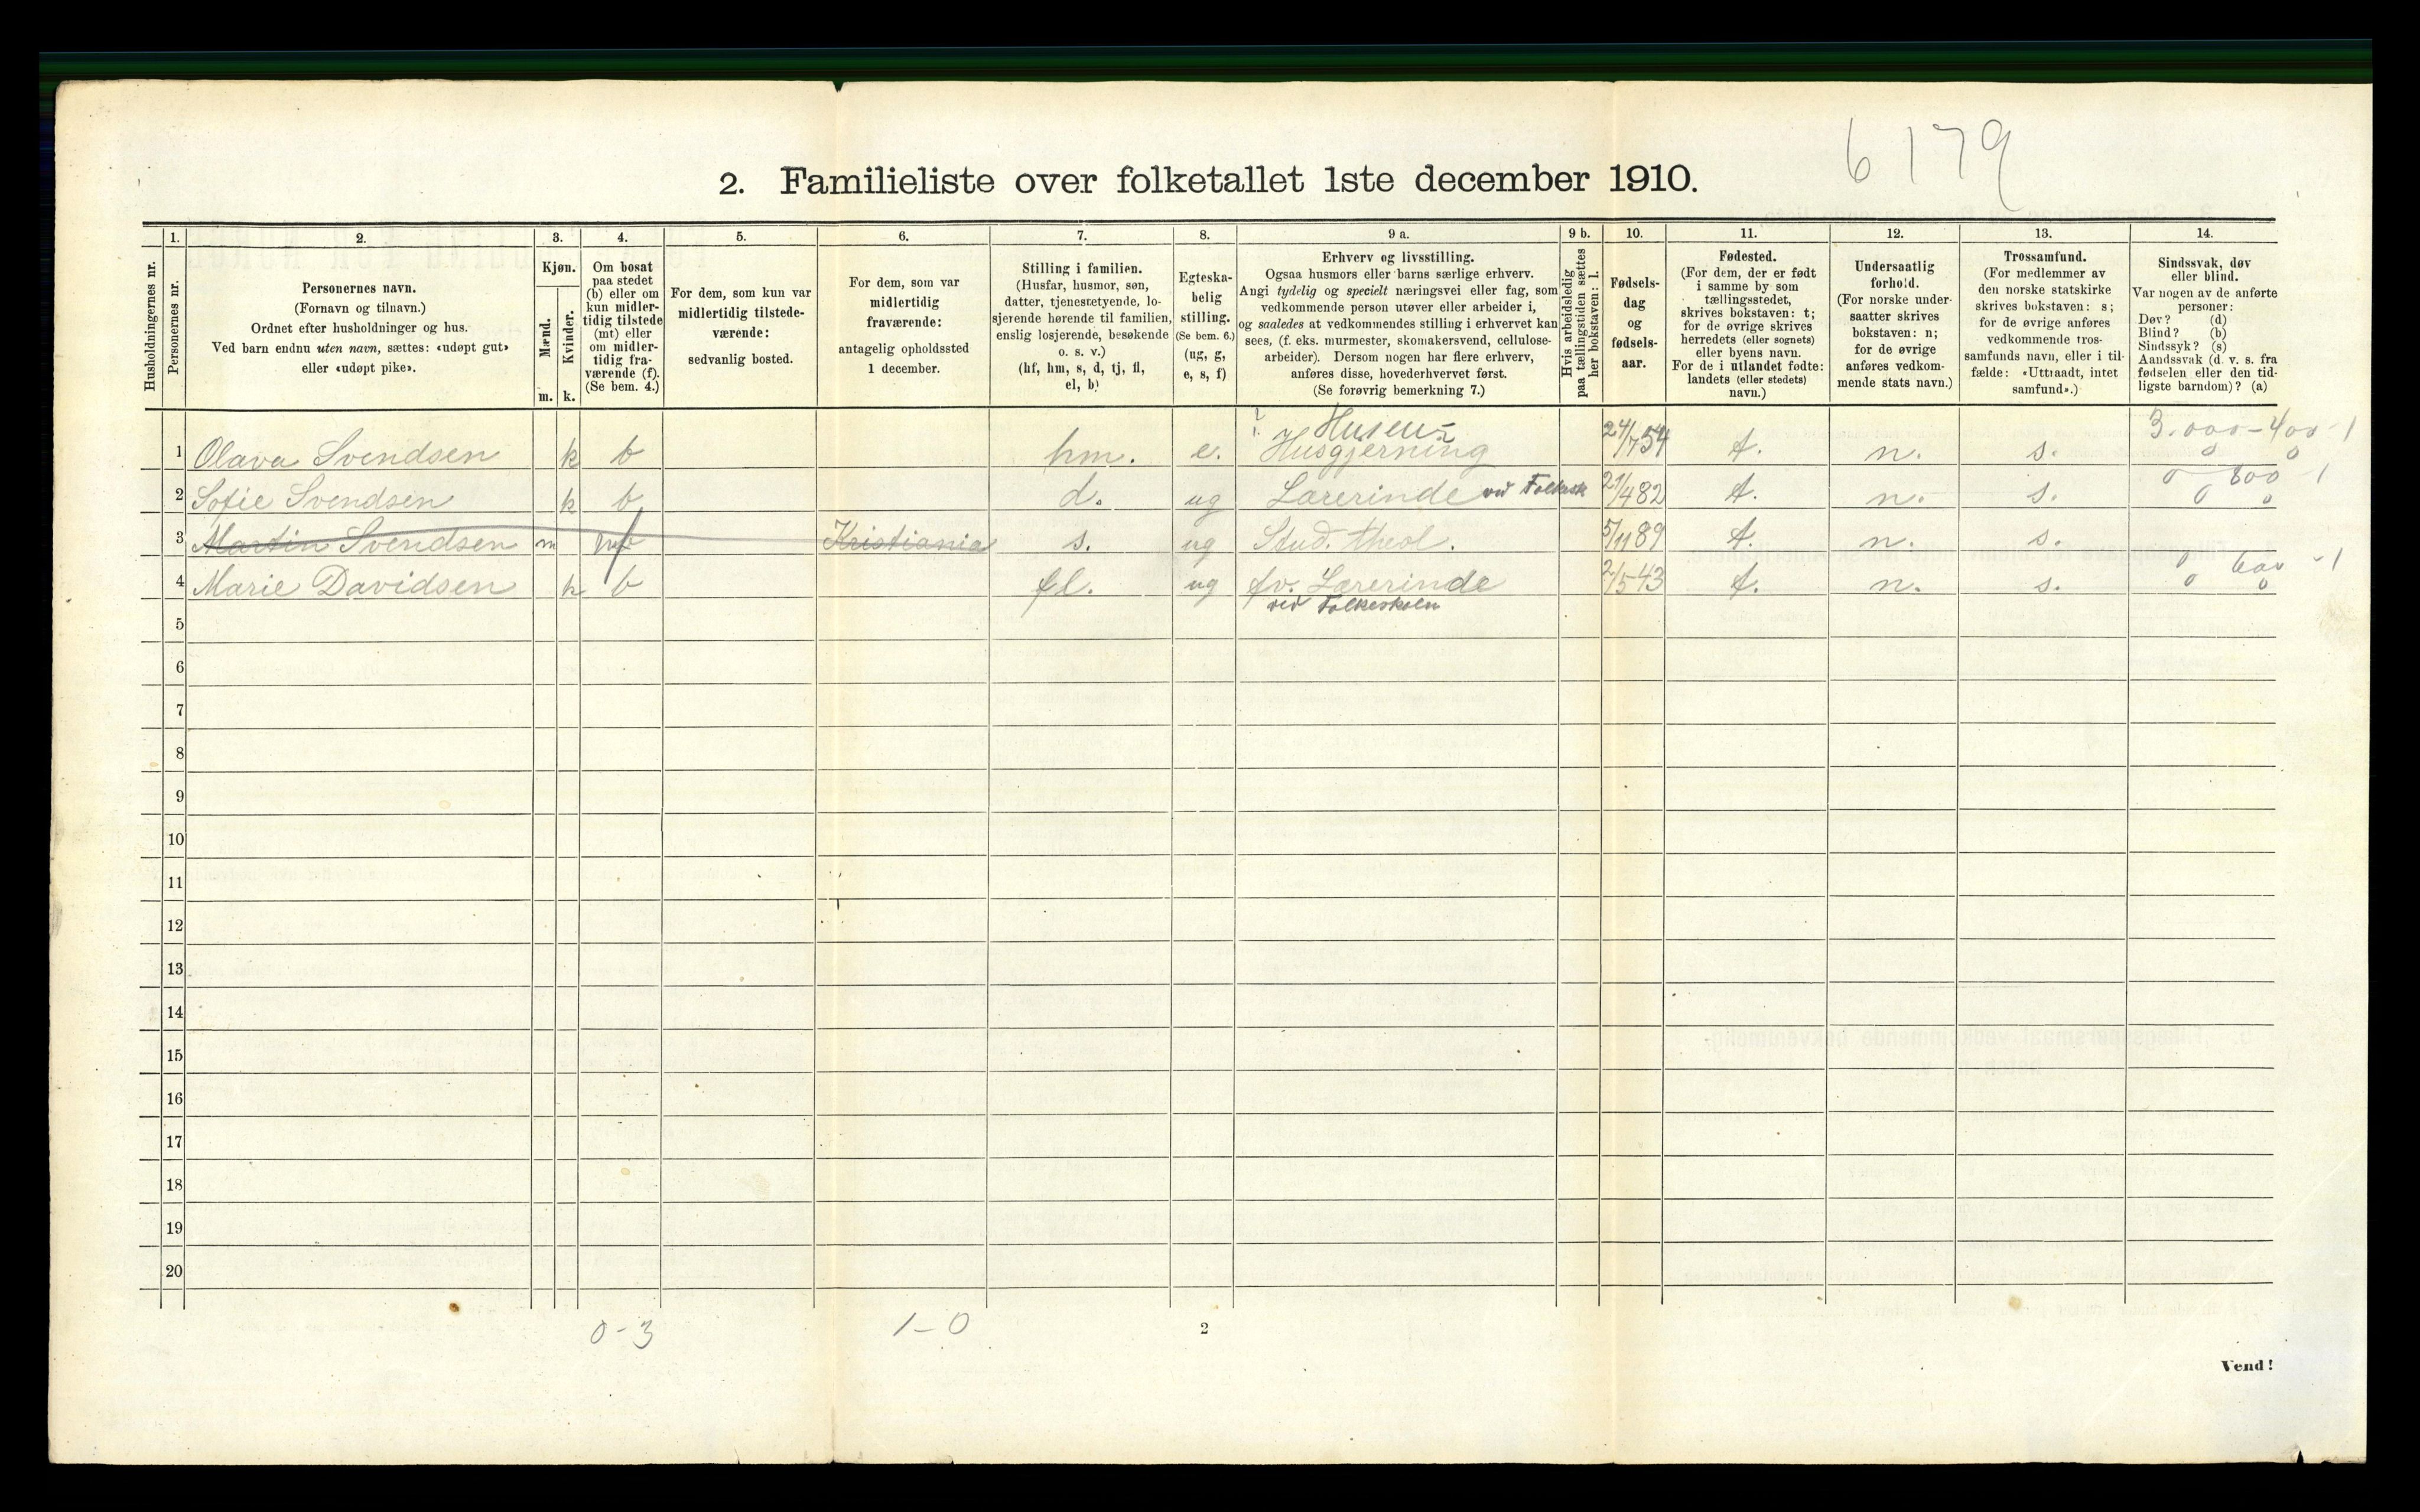 6179
2. Familieliste over folketallet 1ste december 1910.
Husholdningernes nr.
1. Personernes nr.
2. Personernes navn.
(Fornavn og tilnavn.)
Ordnet efter husholdninger og hus.
Ved barn endnu uten navn, sættes: «udøpt gut»
eller «udøpt pike».
3. Kjøn.
Mænd. m.
Kvinder. k.
4. Om bosat
paa stedet
(b) eller om
kun midler-
tidig tilstede
(mt) eller
om midler-
tidig fra-
værende (f).
(Se bem. 4.)
5. For dem, som kun var
midlertidig tilstede-
værende:
sedvanlig bosted.
6. For dem, som var
midlertidig
fraværende:
antagelig opholdssted
1 december.
7. Stilling i familien.
(Husfar, husmor, søn,
datter, tjenestetyende, lo-
sjerende hørende til familien,
enslig losjerende, besøkende
o. s. v.)
(hf, hm, s, d, tj, fl,
el, b)
8. Egteska-
belig
stilling.
(Se bem. 6.)
(ug, g,
e, s, f)
9 a. Erhverv og livsstilling.
Ogsaa husmors eller barns særlige erhverv.
Angi tydelig og specielt næringsvei eller fag, som
vedkommende person utøver eller arbeider i,
og saaledes at vedkommendes stilling i erhvervet kan
sees, (f. eks. murmester, skomakersvend, cellulose-
arbeider). Dersom nogen har flere erhverv,
anføres disse, hovederhvervet først.
(Se forøvrig bemerkning 7.)
9 b. Hvis arbeidsledig
paa tællingstiden sættes
her bokstaven: l.
10. Fødsels-
dag
og
fødsels-
aar.
11. Fødested.
(For dem, der er født
i samme by som
tællingsstedet,
skrives bokstaven: t;
for de øvrige skrives
herredets (eller sognets)
eller byens navn.
For de i utlandet fødte:
landets (eller stedets)
navn.)
12. Undersaatlig
forhold.
(For norske under-
saatter skrives
bokstaven: n;
for de øvrige
anføres vedkom-
mende stats navn.)
13. Trossamfund.
(For medlemmer av
den norske statskirke
skrives bokstaven: s;
for de øvrige anføres
vedkommende tros-
samfunds navn, eller i til-
fælde: «Uttraadt, intet
samfund».)
14. Sindssvak, døv
eller blind.
Var nogen av de anførte
personer:
Døv? (d)
Blind? (b)
Sindssyk? (s)
Aandssvak (d. v. s. fra
fødselen eller den tid-
ligste barndom)? (a)
3.000-400-1
1 Olava Svendsen k b hm. e. Husgjerning 24/7 54 t. n. s. 0 0
0 800 1
2 Sofie Svendsen k b d. ug Lærerinde ved Folkesk 21/4 82 t. n. s. 0 0
3 Martin Svendsen m f Kristiania s. ug Stud. theol. 5/11 89 t. n. s.
0 600 -1
4 Marie Davidsen k b fl. ug fv. Lærerinde 2/5 43 t. n. s. 0 0
ved Folkeskolen
5
6
7
8
9
10
11
12
13
14
15
16
17
18
19
20
0-3 1-0 2
Vend!